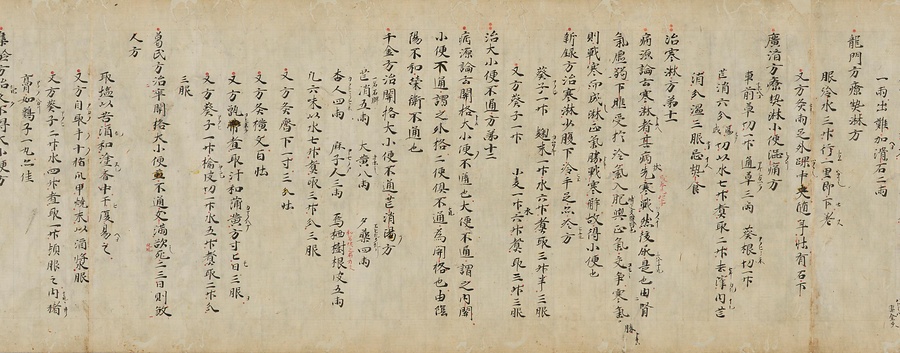 一両出難加滑石二両
龍門方療熱淋方
服冷水三升行一里即下若
又方灸両足外踝中央随年壮有石下
広済方療熱淋小便渋痛方
車前草切一升 通草三両 葵根切一升
芒消六分 湯成 切以水七升煮取二升去滓内芒
消分温三服忌熱食
治寒淋方第十一
病源論云寒淋者其病先寒戦然後尿是也由腎
気虚弱下焦受於冷気入胞与正気交争寒気勝
則戦寒而成淋正気勝戦寒解故得小便也
新録方治寒淋小腹下冷手足亦冷方
葵子一升 䋥末一升水六升煮取三升半三服
又方葵子一升 小麦一升水六升煮取三升三服
治大小便不通方第十二
病源論云関格大小便不通也大便不通謂之内関
小便不通謂之外格二便倶不通為関格也由陰
陽不和栄衛不通也
千金方治関格大小便不通芒消湯方
芒消五両 大黄八両 夕薬四両
杏人四両 麻子人三両 烏梅樹根皮五両
凡六味以水七升煮取三升分三服
又方灸臍下一寸三分壮
又方灸横文百壮
又方乾䕡煮取汁和蒲黄方寸匕日三服
又方葵子一升楡皮切一升水五升煮取二升分
三服
葛氏方治卒関格大小便並不通支満欲死二三日則殺
人方
取塩以苦消和塗斎中干復易之
又方自取十指爪甲焼末以酒漿服
又方葵子二升水四升煮取一升頓服之内猪
膏如鶏子一丸佳
集験方治